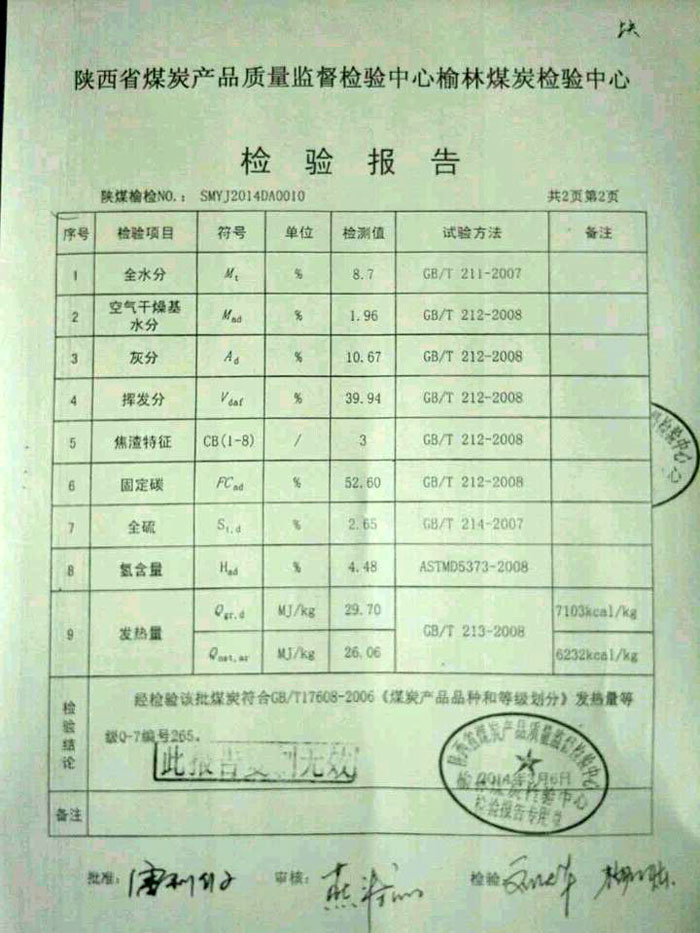 陕西省煤炭产品质量监督检验中心榆林煤炭检验中心
检 验 报 告
陕煤榆检NO.： SMYJ2014DA0010 共2页第2页
序号 检验项目 符号 单位 检测值 试验方法 备注
1 全水分 Mt % 8.7 GB/T 211-2007
2 空气干燥基水分 Mad % 1.96 GB/T 212-2008
3 灰分 Ad % 10.67 GB/T 212-2008
4 挥发分 Vdaf % 39.94 GB/T 212-2008
5 焦渣特征 CB(1-8) / 3 GB/T 212-2008
6 固定碳 FCad % 52.60 GB/T 212-2008
7 全硫 St,d % 2.65 GB/T 214-2007
8 氢含量 Had % 4.48 ASTMD5373-2008
9 发热量 Qgr,d MJ/kg 29.70 GB/T 213-2008 7103kcal/kg
Qnet,ar MJ/kg 26.06 6232kcal/kg
检验结论 经检验该批煤炭符合GB/T17608-2006《煤炭产品品种和等级划分》发热量等
级Q-7编号265。
此报告复制无效
陕西省煤炭产品质量监督检验中心
榆林煤炭检验中心
检验报告专用章
检验中心
备注
批准： 审核： 检验：